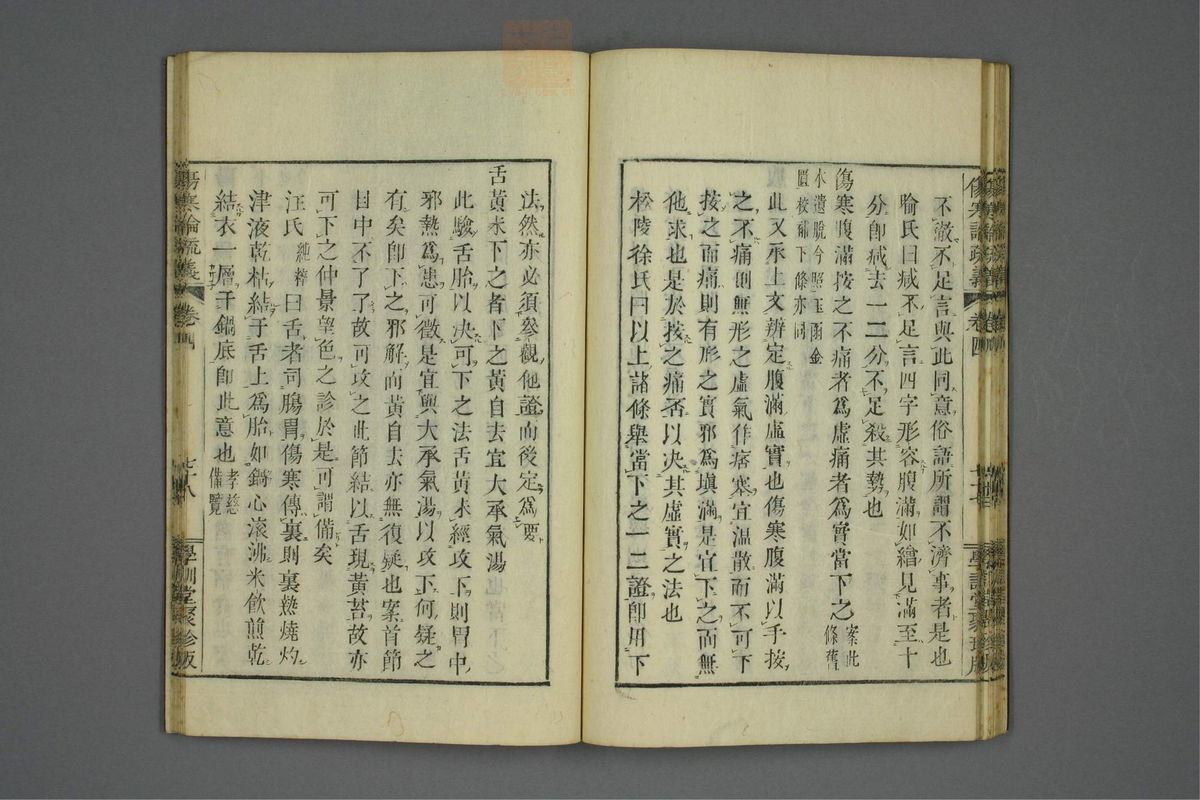 不濈不足言與此同意俗語所謂不濟事者是也
喻氏曰减不足言四字形容腹滿如繪見滿至十
分卽减去一二分不足殺其勢也
傷寒腹滿按之不痛者爲虛痛者爲實當下之
案此條舊
本遺脫今照玉函金
匱校補下條亦同
此又承上文辨定腹滿虛實也傷寒腹滿以手按
之不痛則無形之虛氣作痞塞宜温散而不可下
按之而痛則有形之實邪爲填滿是宜下之而無
他求也是於按之痛否以决其虛實之法也
松陵徐氏曰以上諸條舉當下之一二證卽用下
法然亦必須參觀他證而後定爲要
舌黄未下之者下之黄自去宜大承氣湯
此驗舌胎以决可下之法舌黄未經攻下則胃中
邪熱爲患可徵是宜與大承氣湯以攻下何疑之
有矣卽下之邪解而黄自去亦無復疑也案首節
目中不了了故可攻之此節結以舌現黄苔故亦
可下之仲景望色之診於是可謂備矣
汪氏純粹曰舌者司腸胃傷寒傳裏則裏熱燒灼
津液乾枯結于舌上爲胎如鍋心滚沸米飮煎乾
結衣一層于鍋底卽此意也孝慈備覽
傷寒論疏義 卷四 七十八 學訓堂聚珍版